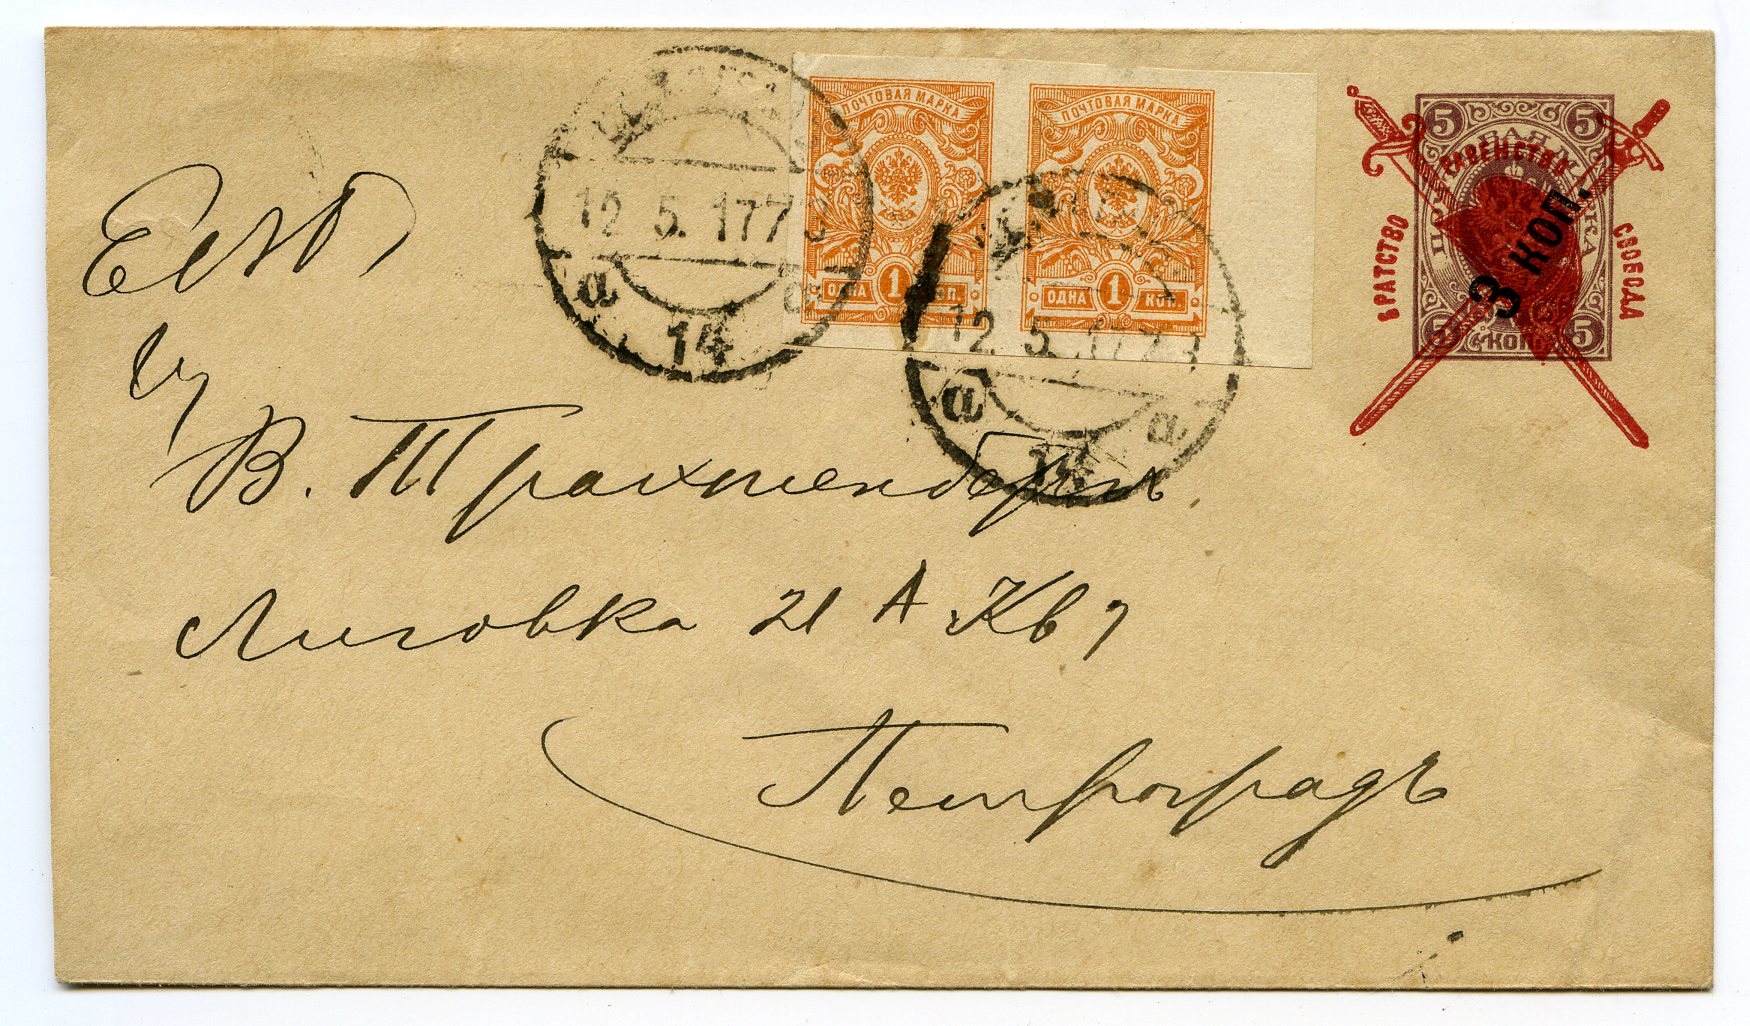 ПОЧТОВАЯ МАРКА
ОДНА 1 КОП.
ПОЧТОВАЯ МАРКА
ОДНА 1 КОП.
5 5
РАВЕНСТВО
БРАТСТВО
СВОБОДА
3 КОП.
5 КОП. 5
12.5.17 7
а а
14
12.5.17
а а
14
ЕВБ
В. Трахтенбергъ
Лиговка 21 А Кв 7
Петроградъ